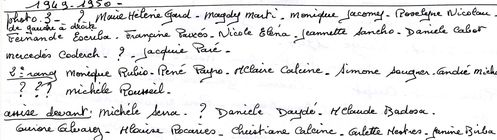 1949-1950-
photo 3 - ? Marie Hélène Gard - Magdy Marti, monique Jacomy - Roselyne Nicolau -
de gauche à droite
Fernande Escriba - Françine Pavés - Nicole Eléna - Jeannette Sancho - Daniele Cabot
mercedès Coderch - ? - Jacquie Paré.
2è rang monique Rubio - René Payro - MClaire Calcine - Simone Saugner - andré miche
? ? ? michèle Roussel -
assise devant: michèle Sena - ? Daniele Daydé - MClaude Badosa -
aurore Alvarez - MLouise Pocarres - Christiane Calcine - arlette Mestres - Janine